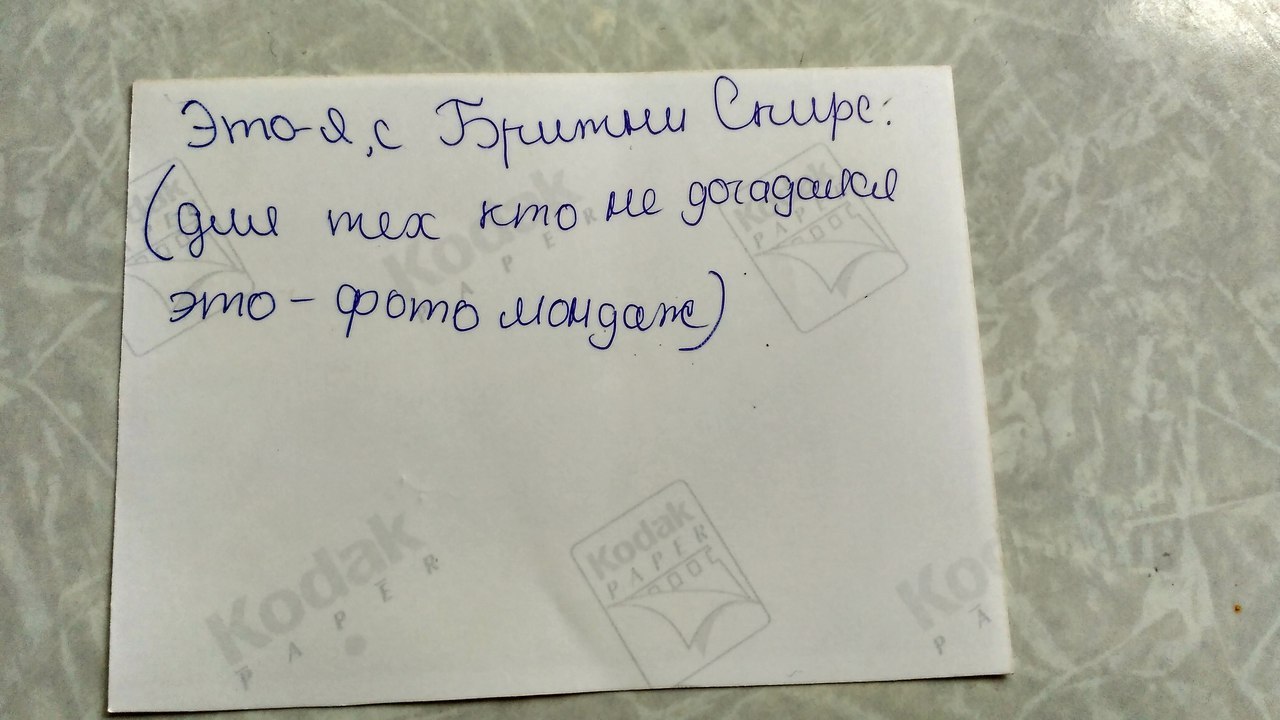 Это-я, с Бритни Спирс:
(для тех кто не догадался
это - фото мондаж)
Kodak
PAPER
Kodak
PAPER
Kodak
PAPER
Kodak
PAPER
Kodak
PAPER